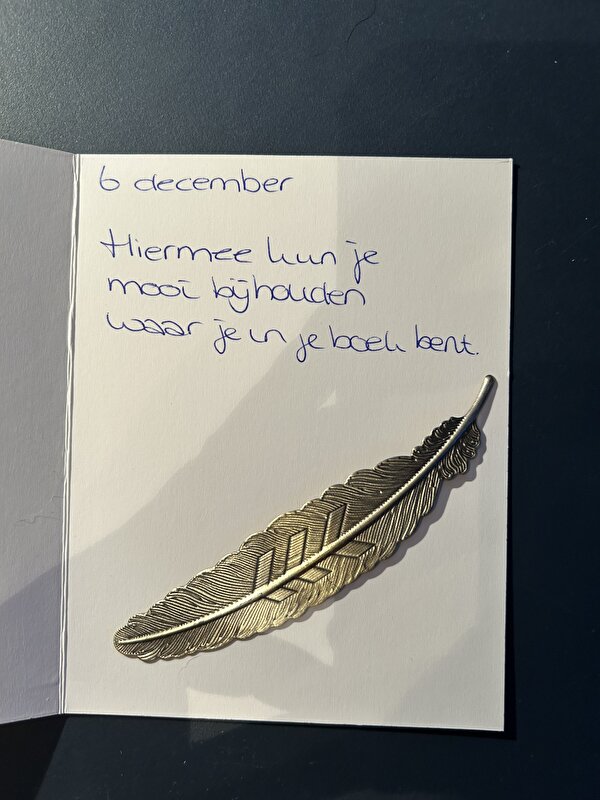 6 december
Hiermee kun je
mooi bijhouden
waar je in je boek bent.